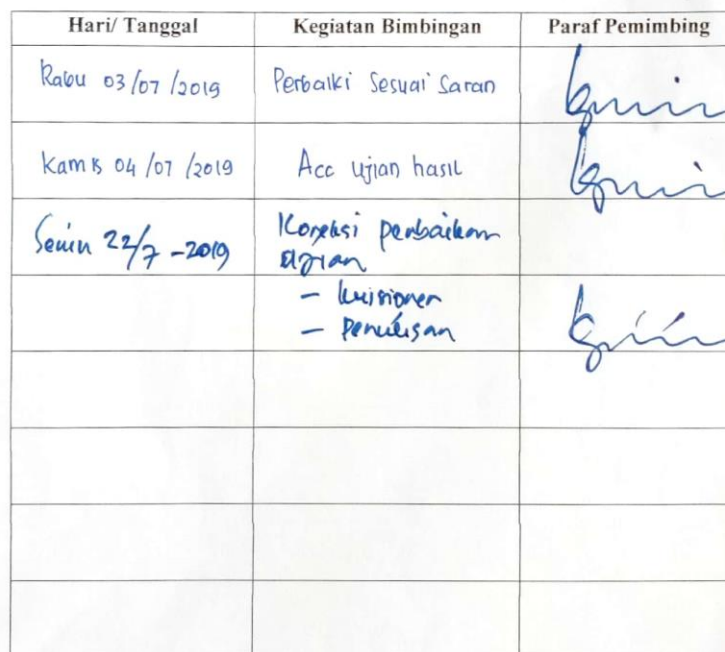 Hari/ Tanggal Kegiatan Bimbingan Paraf Pemimbing
Rabu 03/07/2019 Perbaiki Sesuai Saran
Kamis 04/07/2019 Acc ujian hasil
Senin 22/7-2019 Koreksi perbaikan
ujian
- kuisioner
- penulisan